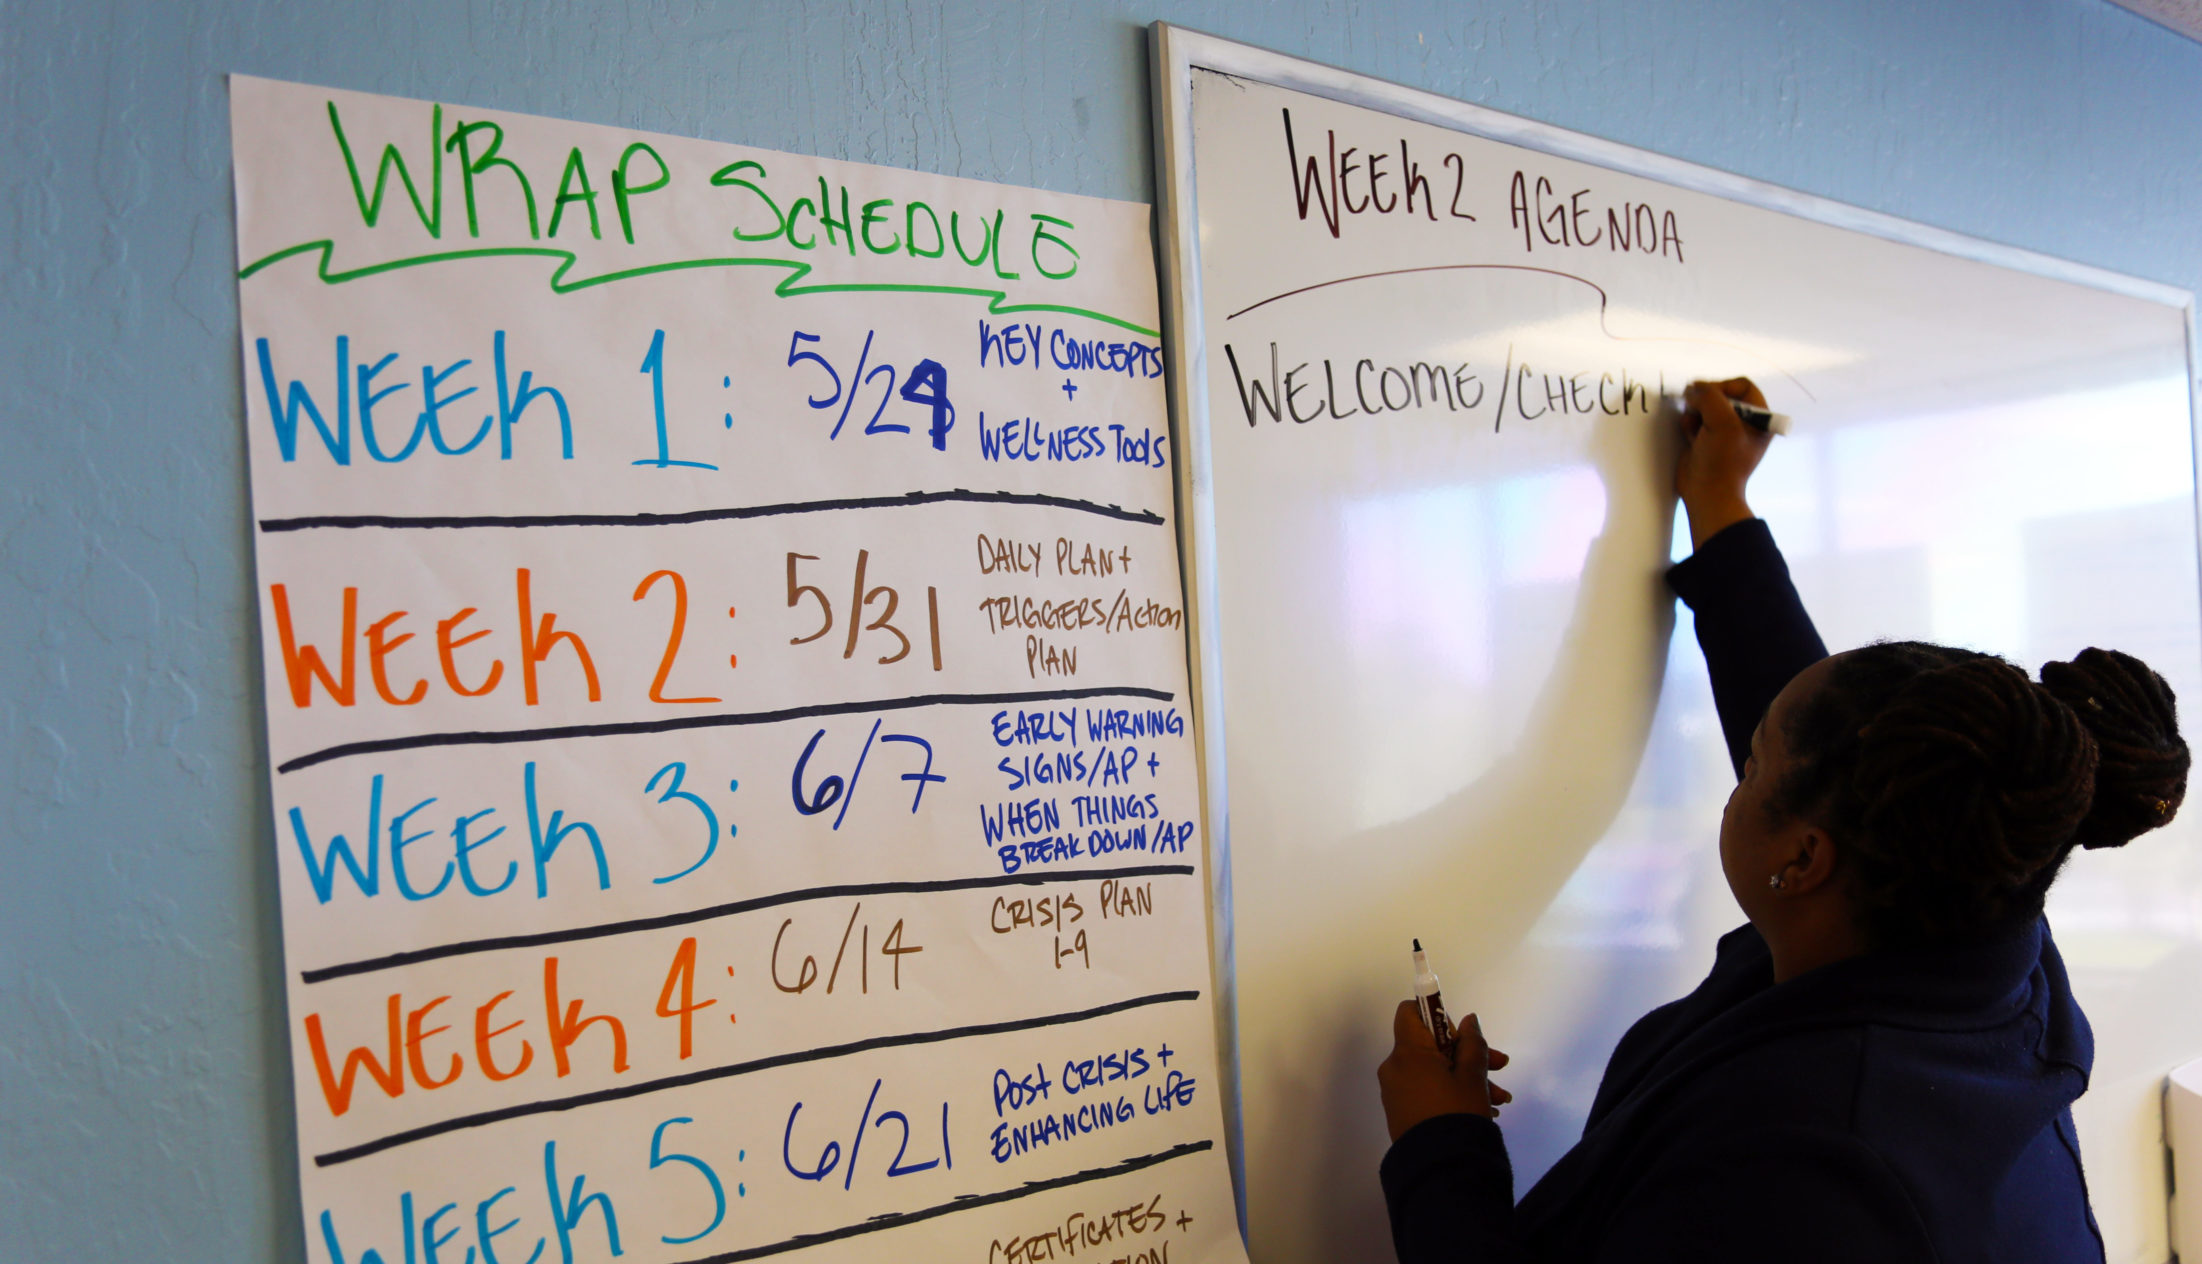 WRAP SCHEDULE
WEEK 1: 5/24 KEY CONCEPTS
+
WELLNESS TOOLS
WEEK 2: 5/31 DAILY PLAN +
TRIGGERS/ACTION
PLAN
WEEK 3: 6/7 EARLY WARNING
SIGNS/AP +
WHEN THINGS
BREAK DOWN/AP
WEEK 4: 6/14 CRISIS PLAN
1-9
WEEK 5: 6/21 POST CRISIS +
ENHANCING LIFE
CERTIFICATES +
WEEK 2 AGENDA
WELCOME/CHECK